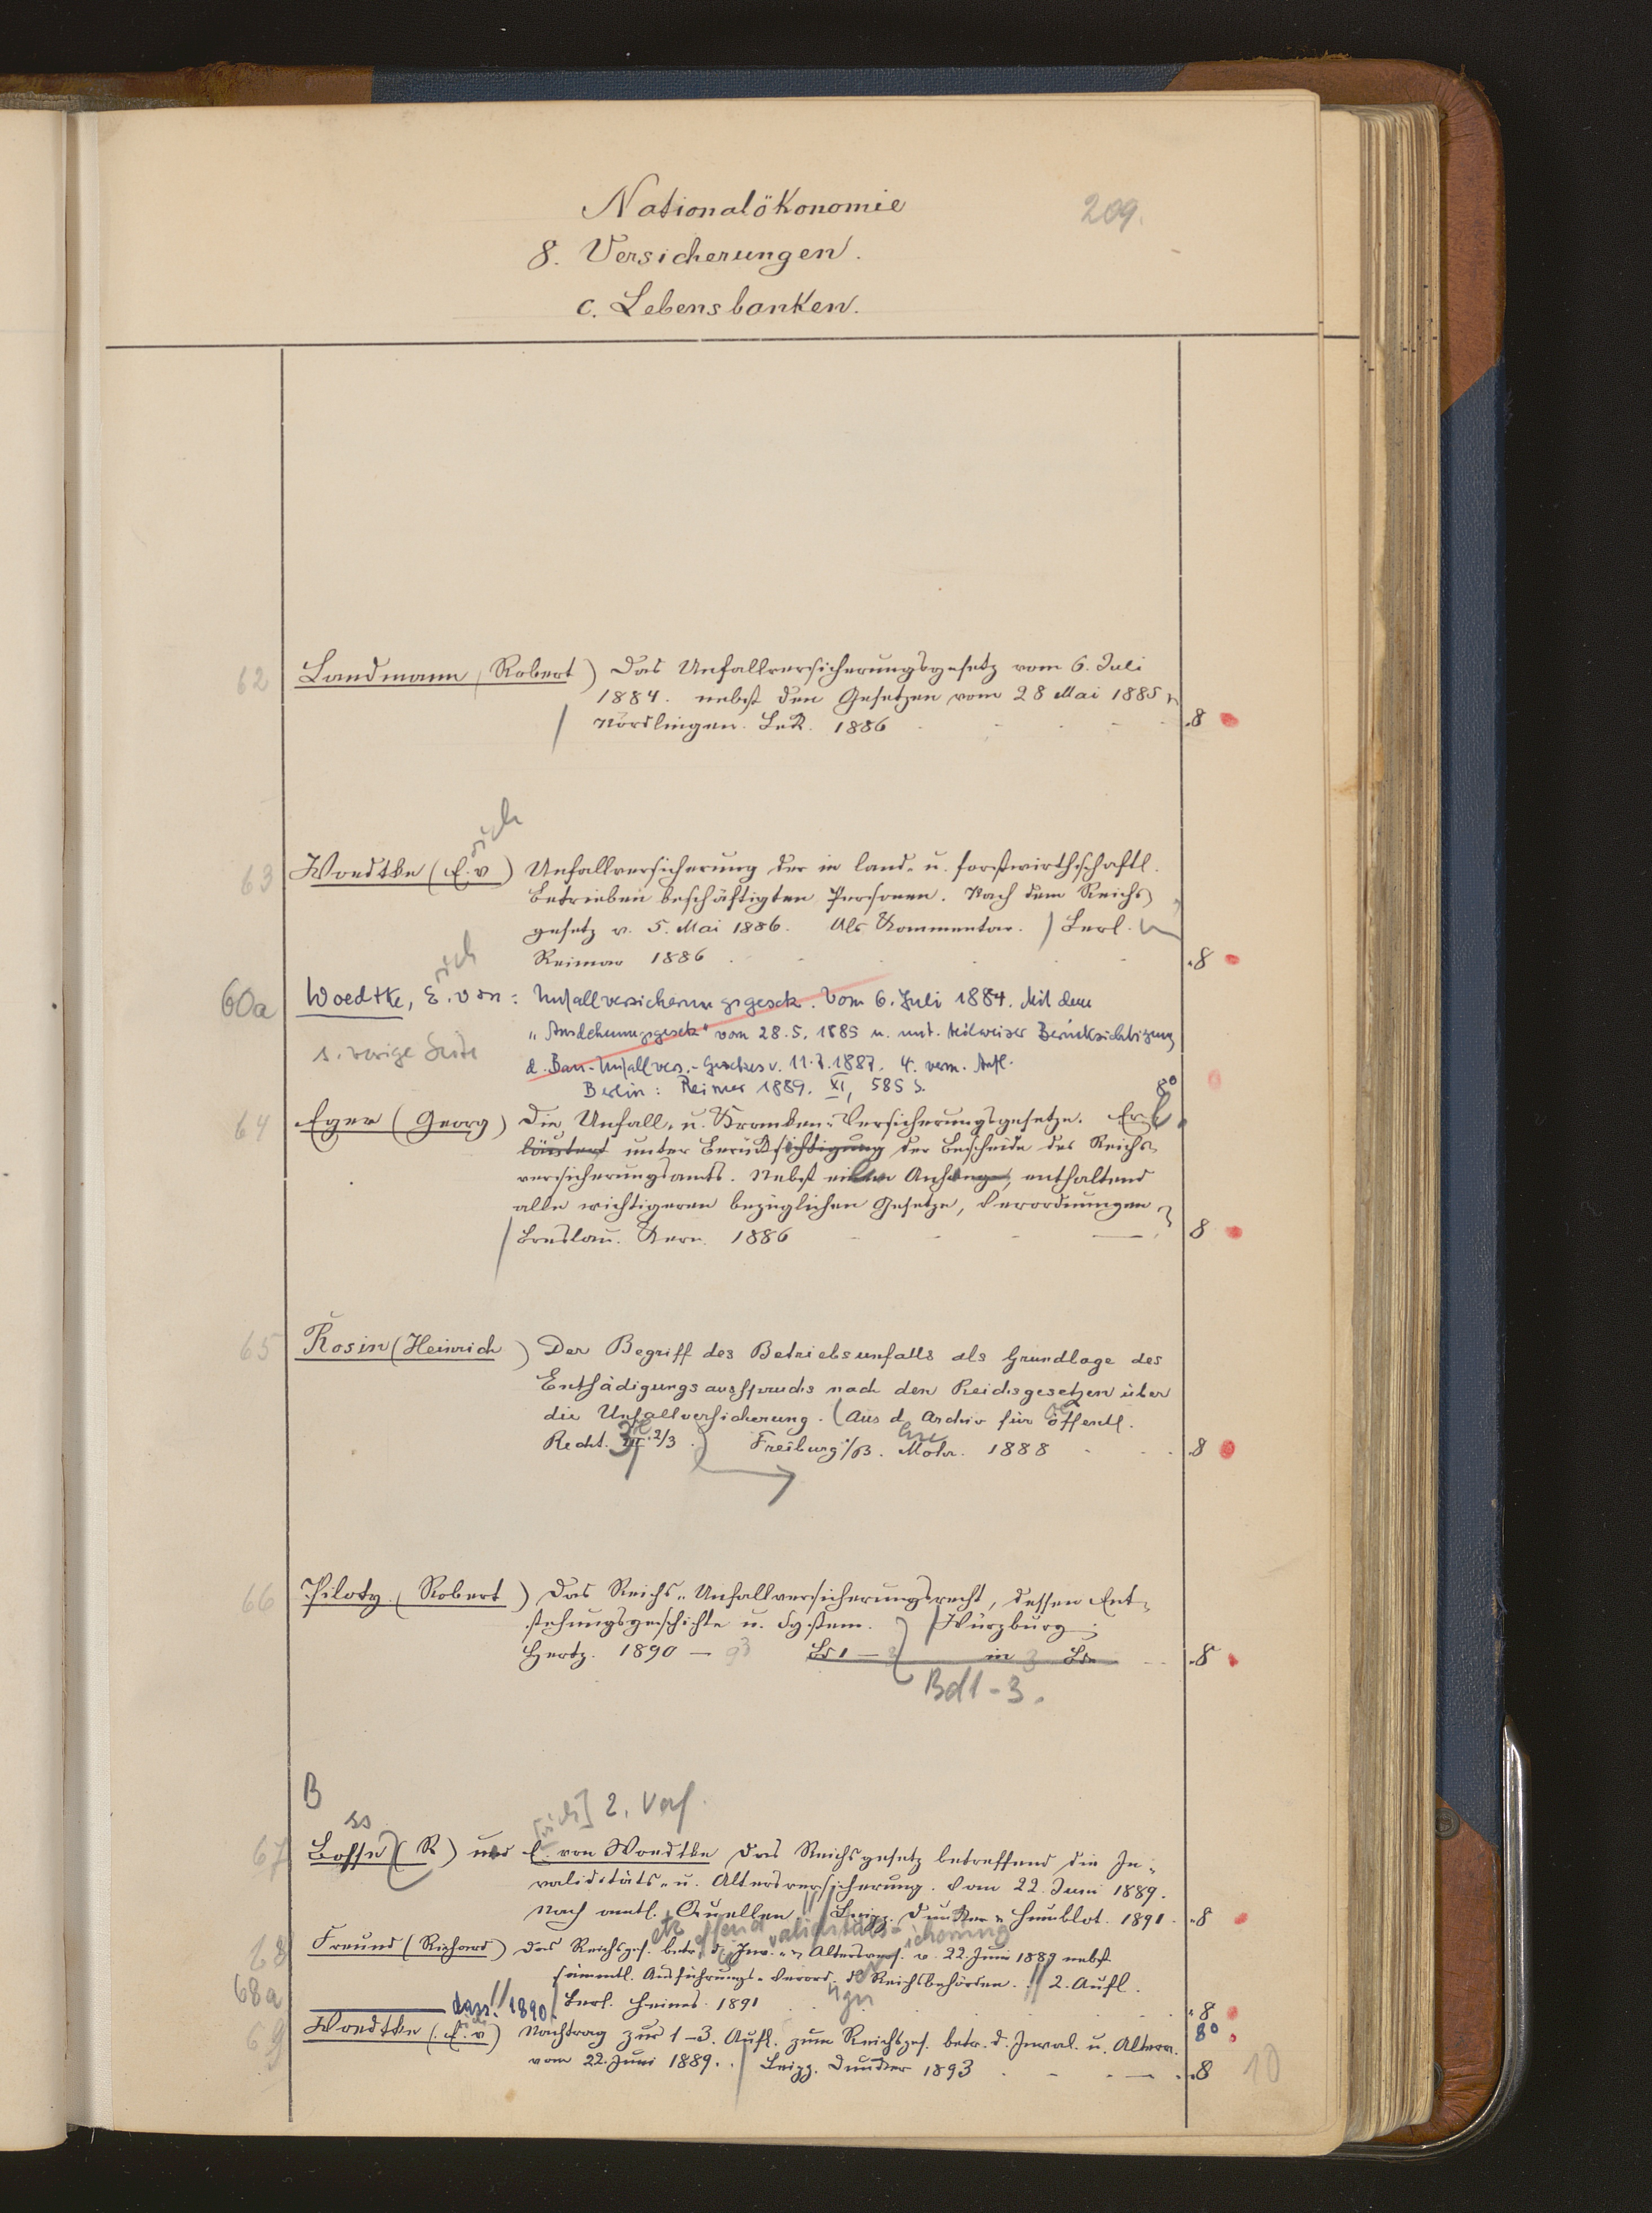 Nationalökonomie
209.
8. Versicherungen.
c. Lebensbanken.
62 Landmann (Robert) Das Unfallversicherungsgesetz vom 6. Juli
1884. nebst den Gesetzen vom 28 Mai 1885
Nördlingen. Beck. 1886 8
rich
63 Woedtke (E. v) Unfallversicherung der in land- u. forstwirthschaftl.
Betrieben beschäftigten Personen. Nach dem Reichs
gesetz v. 5. Mai 1886. Als Kommentar. Berl.
Reimer 1886 8
rich
60a Woedtke, E. von: Unfallversicherungsgesetz. Vom 6. Juli 1884. Mit dem
"Ausdehnungsgesetz" vom 28.5.1885 u. unt. teilweiser Berücksichtigung
s. vorige Seite
d. Bau-Unfallvers.-Gesetzes v. 11.7.1887. 4. verm. Aufl.
Berlin: Reimer 1889. XI, 585 S. 8°
64 Eger (Georg) Die Unfall- u. Kranken-Versicherungsgesetze. Er-
läutert unter Berücksichtigung der Bescheide des Reichs-
versicherungsamts. Nebst einem Anhange, enthaltend
alle wichtigeren bezüglichen Gesetze, Verordnungen
Breslau. Kern. 1886 8
65 Rosin (Heinrich) Der Begriff des Betriebsunfalls als Grundlage des
Entschädigungsanspruchs nach den Reichsgesetzen über
die Unfallversicherung. (Aus d. Archiv für öffentl.
Recht. III. 2/3.) Freiburg i/B. Mohr. 1888 8
3
66 Piloty (Robert) Das Reichs-Unfallversicherungsrecht, dessen Ent-
stehungsgeschichte u. System. Würzburg
Hertz. 1890 — 93 Bd 1 — 3 in 3 Bde 8
Bd 1-3.
B
ss
[rich] 2. Verf.
67 Bosse (R) und E. von Woedtke Das Reichsgesetz betreffend die In-
validitäts- u. Altersversicherung. Vom 22. Juni 1889.
Nach amtl. Quellen. Leipz. Duncker u. Humblot. 1891. 8
etr effend validitäts- icherung
68 Freund (Richard) Das Reichsges. betr. d. Inv.- u. Altersvers. v. 22. Juni 1889 nebst
sämmtl. Ausführungs-Verord. d. Reichsbehörden. 2. Aufl.
ngn
Berl. Heines. 1891 8
68a dass. 1890. 8°
69 Woedtke (E. v) Nachtrag zur 1-3. Aufl. zum Reichsges. betr. d. Inval. u. Altersv.
vom 22. Juni 1889. Leipz. Duncker 1893 8
10